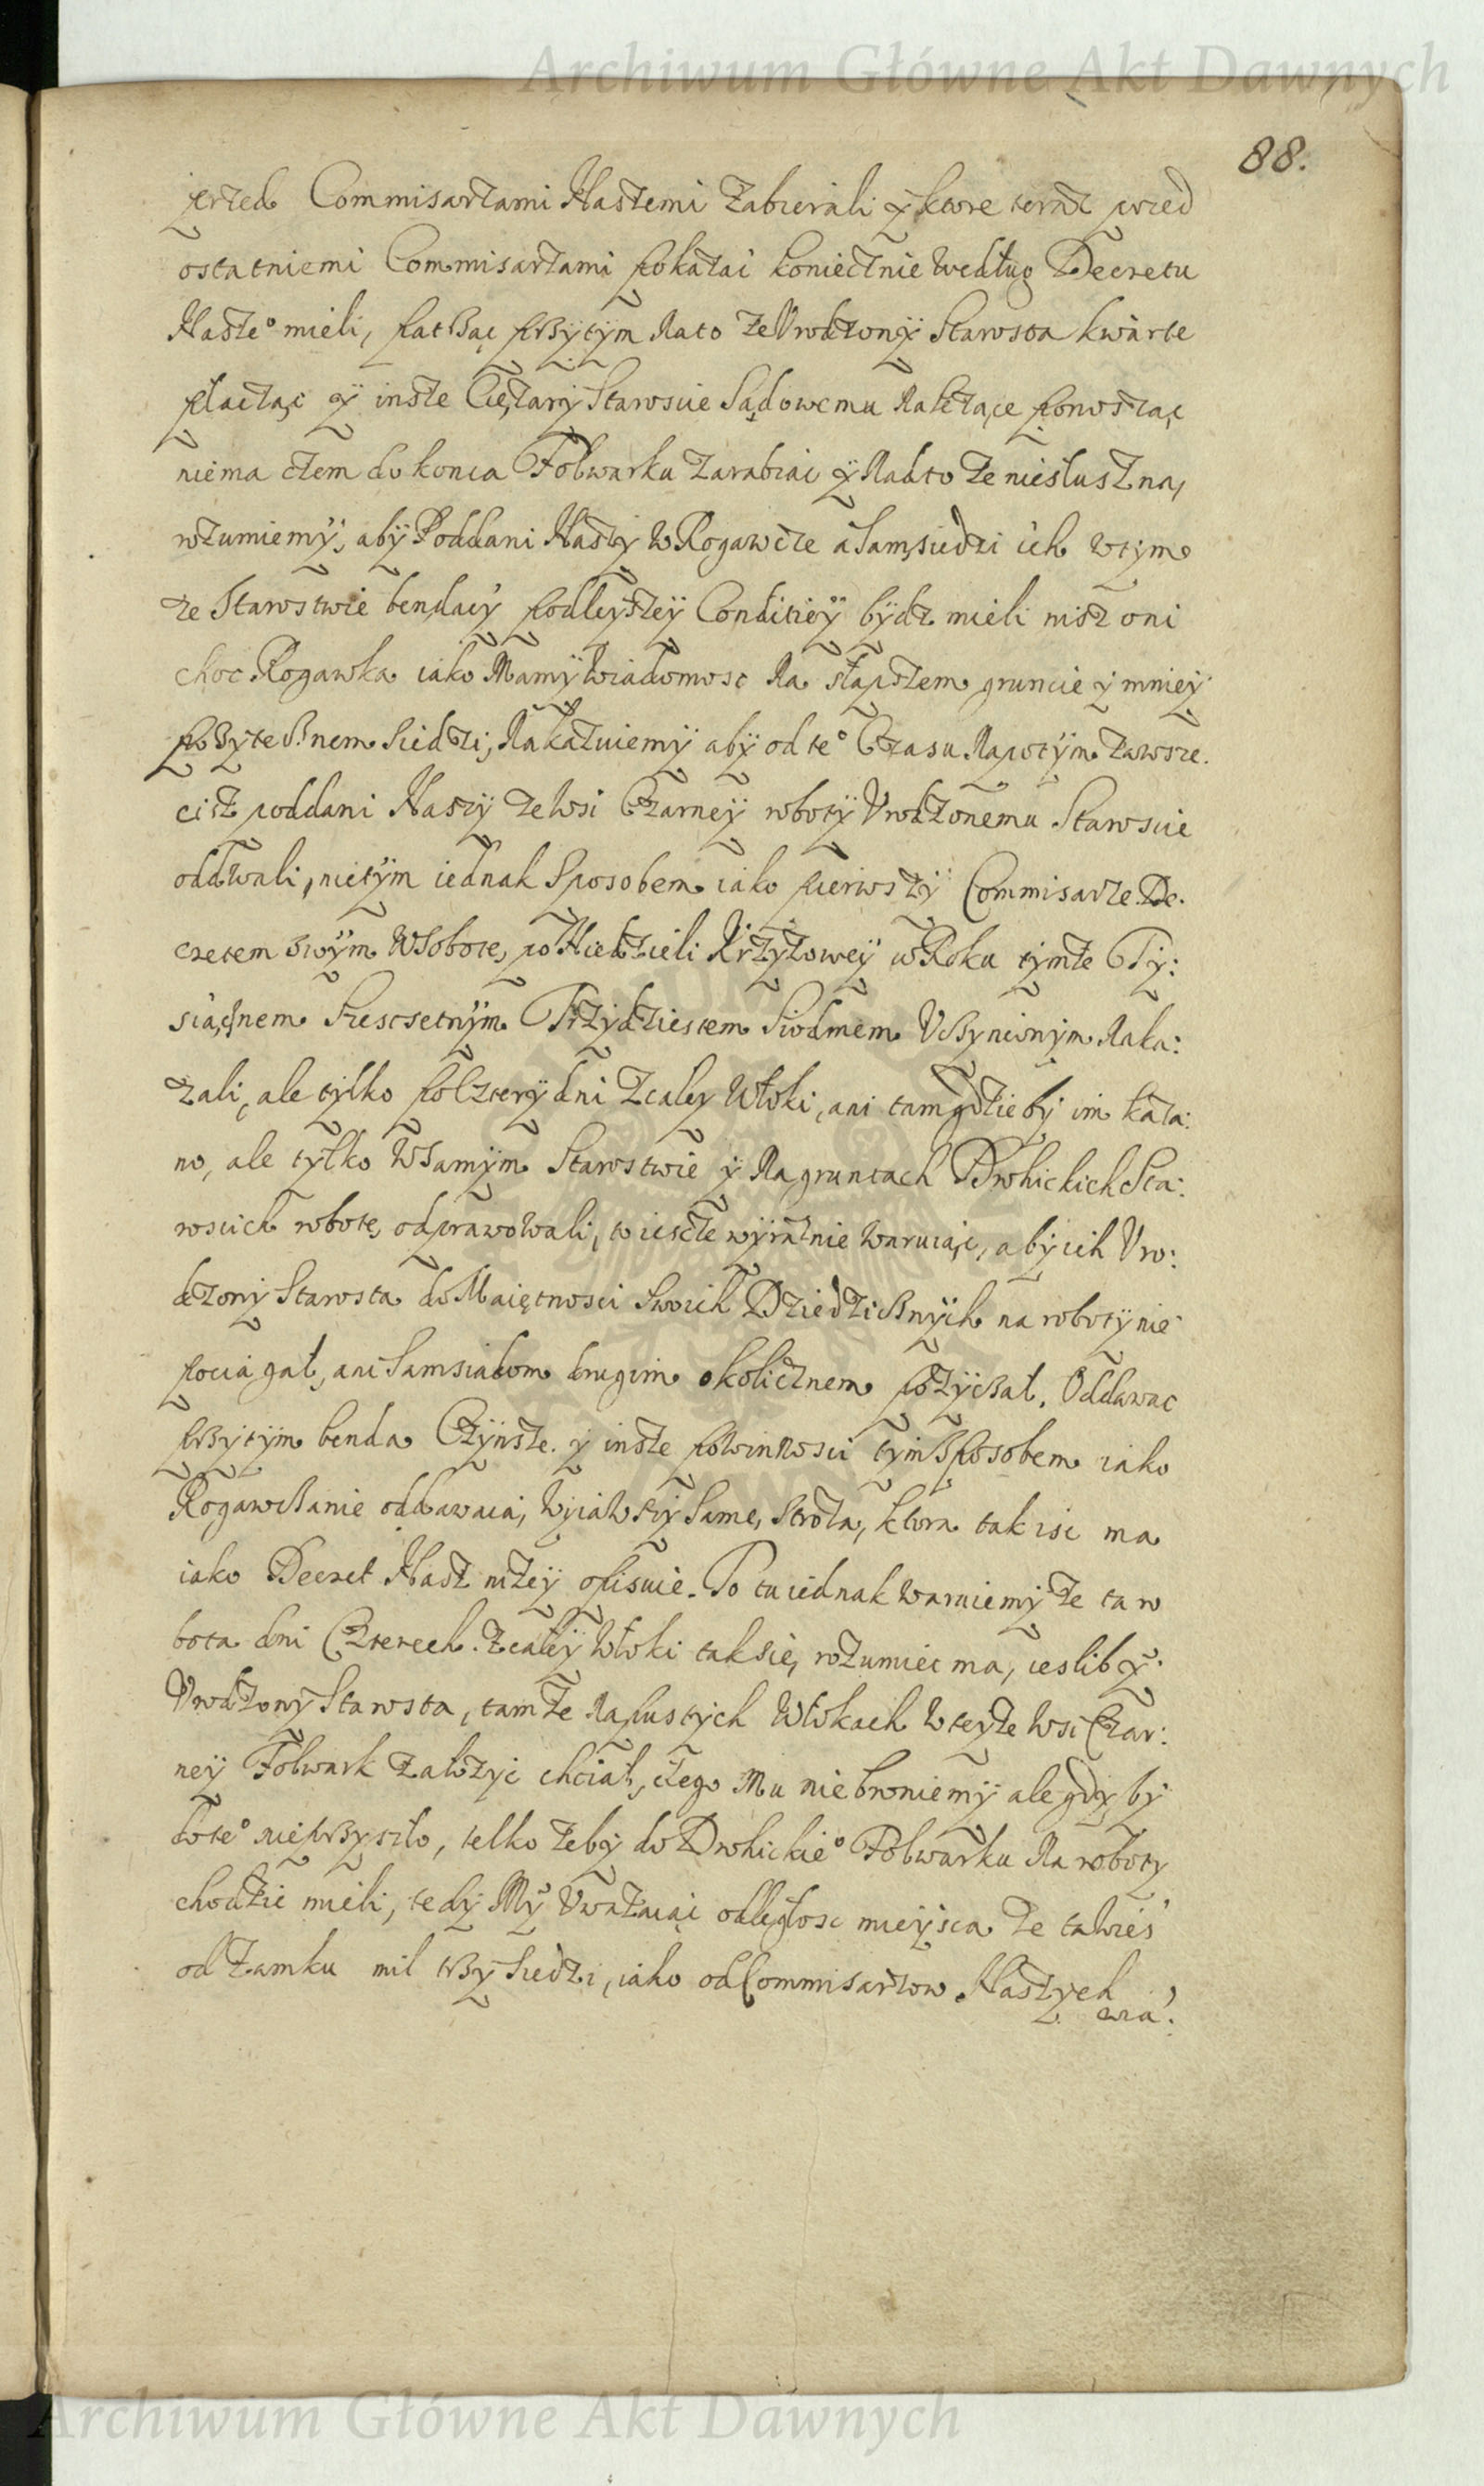 Archiwum Główne Akt Dawnych
88.
przed Commisarzami Naszemi zabierali y ktore teraz przed
ostatniemi Commisarzami pokazać koniecznie według Decretu
Nasze° mieli, patrząc przytym na to że Urodzony Starosta kwarte
płacząc y insze Ciężary Staroscie Sądowemu należące ponosząc
niema czem do konca Folwarku zarabiać y nadto że niesłuszna,
rozumiemy, aby Poddani Naszy w Rogawcze a Sąmsiedzi ich w tym
że Starostwie bendący podleyszey Conditiey bydz mieli nisz oni
choc Rogawka iako Mamy wiadomosc na słapszem gruncie y mniey
pozytecznem siedzi, Nakazuiemy aby od te° Czasu napotym zawsze.
cisz poddani Naszy ze wsi Czarney roboty Urodzonemu Staroscie
oddwali, nietym iednak sposobem iako pierwszy Commisarze De.
cretem swym w Sobote, po Niedzieli Krzyżowey w Roku tymże Ty:
siącznem Szescsetnym Trzydziestem Siodmem Uczynionym naka:
zali, ale tylko po Cztery dni z całey Włoki, ani tam gdzieby im kaza:
no, ale tylko w samym Starostwie y na gruntach Drohickich Sta:
roscich robote, odprawowali, to iescze wyraznie waruiąc, aby ich Uro:
dzony Starosta do Maiętnosci swoich Dziedzicznych na roboty nie
pociągał, ani Samsiadom drugim okolicznem pożyczał. Oddawac
przytym benda Czynsze. y insze powinnosci tym sposobem iako
Rogawczanie oddawaia, wyiąwszy same, stroża, ktora tak isc ma
iako Decret Nasz niżey opisuie. To tu iednak waruiemy że ta ro
bota dni Czterech z całey Włoki tak sie, rozumiec ma, iesliby
Urodzony Starosta, tamże na pustych Włokach w teyże wsi Czar:
ney Folwark założyc chciał, czego Mu nie broniemy ale gdy by
do te° nie przyszło, telko żeby do Drohickie° Folwarku na roboty
chodzic mieli, tedy My Uważaiąc odległosc mieysca że ta wieś
od Zamku mil trzy siedzi, iako od Commisarzow Naszych
wia:
Archiwum Główne Akt Dawnych